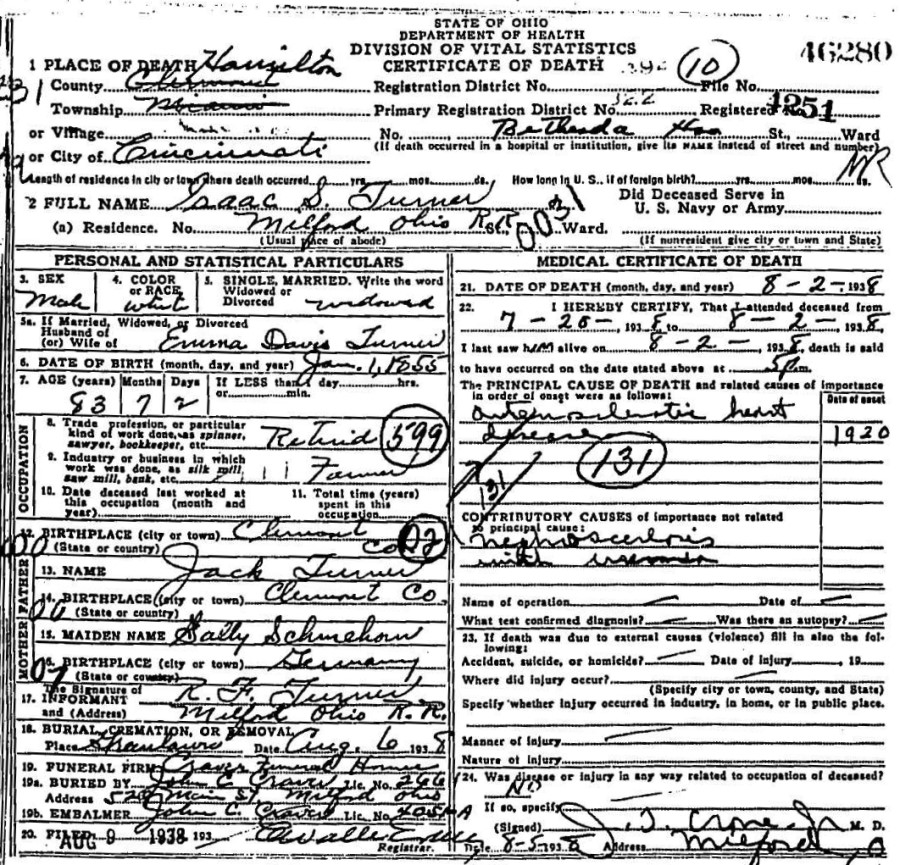 STATE OF OHIO
DEPARTMENT OF HEALTH
DIVISION OF VITAL STATISTICS
CERTIFICATE OF DEATH
46280
1 PLACE OF DEATH Hamilton
County Clermont
Registration District No. 392 (10) File No.
Township Miami
Primary Registration District No. 122 Registered 4251
or Village
No. Bethesda Hos St., Ward
or City of Cincinnati
(If death occurred in a hospital or institution, give its NAME instead of street and number)
NR
Length of residence in city or town where death occurred yrs. mos. ds. How long in U. S., if of foreign birth? yrs. mos. ds.
2 FULL NAME Isaac S. Turner
Did Deceased Serve in
U. S. Navy or Army
(a) Residence. No. Milford Ohio R.R. St., Ward.
0031
(Usual place of abode)
(If nonresident give city or town and State)
PERSONAL AND STATISTICAL PARTICULARS
3. SEX Male
4. COLOR or RACE white
5. SINGLE, MARRIED. Write the word
Widowed or
Divorced widowed
5a. If Married, Widowed, or Divorced
Husband of
(or) Wife of Emma Davis Turner
6. DATE OF BIRTH (month, day, and year) Jan. 1, 1855
7. AGE (years) Months Days If LESS than 1 day hrs.
or min.
83 7 2
OCCUPATION
8. Trade, profession, or particular
kind of work done, as spinner,
sawyer, bookkeeper, etc. Retired 599
9. Industry or business in which
work was done, as silk mill,
saw mill, bank, etc. Farmer
10. Date deceased last worked at
this occupation (month and
year)
11. Total time (years)
spent in this
occupation
12. BIRTHPLACE (city or town) Clermont
(State or country) Co
FATHER
13. NAME Jack Turner
14. BIRTHPLACE (city or town) Clermont Co.
(State or country)
MOTHER
15. MAIDEN NAME Sally
16. BIRTHPLACE (city or town) Germany
(State or country)
The Signature of
17. INFORMANT R. F. Turner
and (Address) Milford Ohio R. R.
18. BURIAL, CREMATION, OR REMOVAL
Place Date Aug. 6 1938
19. FUNERAL FIRM Craver Funeral Home
19a. BURIED BY John C. Craver Lic. No. 266
Address 520 Main St Milford Ohio
19b. EMBALMER John C. Craver Lic. No. A
20. FILED AUG 9 1938 193
Registrar.
MEDICAL CERTIFICATE OF DEATH
21. DATE OF DEATH (month, day, and year) 8-2-1938
22. I HEREBY CERTIFY, That I attended deceased from
7-20-, 1938 to 8-2-, 1938
I last saw him alive on 8-2-, 1938, death is said
to have occurred on the date stated above at 5 p.m.
The PRINCIPAL CAUSE OF DEATH and related causes of importance
in order of onset were as follows:
Date of onset
arteriosclerotic heart
disease 1920
131
131
CONTRIBUTORY CAUSES of importance not related
to principal cause:
nephrosclerosis
with uremia
Name of operation Date of
What test confirmed diagnosis? Was there an autopsy?
23. If death was due to external causes (violence) fill in also the fol-
lowing:
Accident, suicide, or homicide? Date of injury , 19
Where did injury occur?
(Specify city or town, county, and State)
Specify whether injury occurred in industry, in home, or in public place.
Manner of injury
Nature of injury
24. Was disease or injury in any way related to occupation of deceased?
No
If so, specify
(Signed) J. T. Crone Jr M. D.
Date 8-5-1938 Address Milford, O